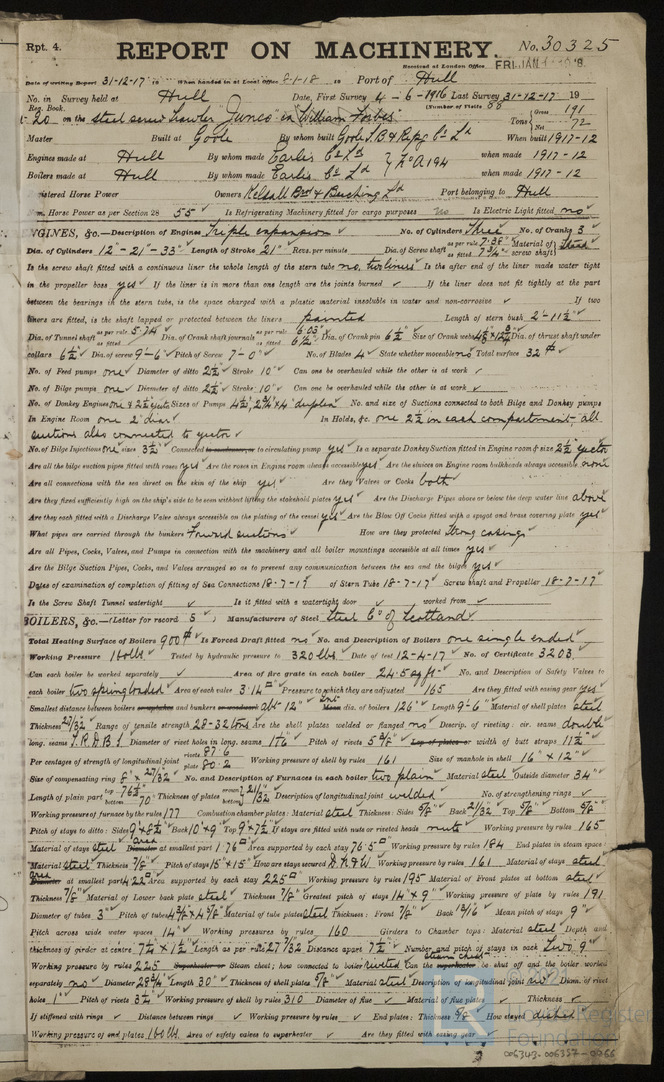 Rpt. 4.
REPORT ON MACHINERY.
No. 30325
Received at London Office FRI. JAN
Date of writing Report 31-12-17 19 When handed in at Local Office 2-1-18 19 Port of Hull
No. in Survey held at Hull Date, First Survey 4-6-1916 Last Survey 31-12-17 19
Reg. Book. (Number of Visits 88
20 on the steel screw trawler "Junco" ex William Forbes Tons { Gross 191
Net 72
Master Built at Goole By whom built Goole S.B. & Repg Co Ld When built 1917-12
Engines made at Hull By whom made Earle's Co Ld No. 194 when made 1917-12
Boilers made at Hull By whom made Earle's Co Ld when made 1917-12
Registered Horse Power Owners Kelsall Bros & Beeching Ld Port belonging to Hull
Nom. Horse Power as per Section 28 55 Is Refrigerating Machinery fitted for cargo purposes no Is Electric Light fitted no
ENGINES, &c.—Description of Engines Triple expansion No. of Cylinders Three No. of Cranks 3
Dia. of Cylinders 12"-21"-33" Length of Stroke 21" Revs. per minute Dia. of Screw shaft as per rule 7.38" as fitted 7 3/4" Material of screw shaft Steel
Is the screw shaft fitted with a continuous liner the whole length of the stern tube no, two liners Is the after end of the liner made water tight
in the propeller boss yes If the liner is in more than one length are the joints burned If the liner does not fit tightly at the part
between the bearings in the stern tube, is the space charged with a plastic material insoluble in water and non-corrosive If two
liners are fitted, is the shaft lapped or protected between the liners painted Length of stern bush 2'-11 1/2"
Dia. of Tunnel shaft as per rule 5.74 as fitted Dia. of Crank shaft journals as per rule 6.03" as fitted 6 1/2" Dia. of Crank pin 6 1/2" Size of Crank webs Dia. of thrust shaft under
collars 6 1/2" Dia. of screw 9'-6" Pitch of Screw 7'-0" No. of Blades 4 State whether moveable no Total surface 32
No. of Feed pumps one Diameter of ditto 2 1/2" Stroke 10" Can one be overhauled while the other is at work
No. of Bilge pumps one Diameter of ditto 2 1/2" Stroke 10" Can one be overhauled while the other is at work
No. of Donkey Engines one & 2 1/2" ejector Sizes of Pumps 4 1/2", 2 3/4" x 4" duplex No. and size of Suctions connected to both Bilge and Donkey pumps
In Engine Room one 2" dia. In Holds, &c. one 2 1/2" in each compartment, all
suctions also connected to ejector
No. of Bilge Injections one sizes 3 1/2" Connected to condenser, or to circulating pump yes Is a separate Donkey Suction fitted in Engine room & size 2 1/2" ejector
Are all the bilge suction pipes fitted with roses yes Are the roses in Engine room always accessible yes Are the sluices on Engine room bulkheads always accessible none
Are all connections with the sea direct on the skin of the ship yes Are they Valves or Cocks both
Are they fixed sufficiently high on the ship's side to be seen without lifting the stokehold plates yes Are the Discharge Pipes above or below the deep water line above
Are they each fitted with a Discharge Valve always accessible on the plating of the vessel yes Are the Blow Off Cocks fitted with a spigot and brass covering plate yes
What pipes are carried through the bunkers Forward suctions How are they protected Strong casings
Are all Pipes, Cocks, Valves, and Pumps in connection with the machinery and all boiler mountings accessible at all times yes
Are the Bilge Suction Pipes, Cocks, and Valves arranged so as to prevent any communication between the sea and the bilges yes
Dates of examination of completion of fitting of Sea Connections 18-7-17 of Stern Tube 18-7-17 Screw shaft and Propeller 18-7-17
Is the Screw Shaft Tunnel watertight Is it fitted with a watertight door worked from
BOILERS, &c.—(Letter for record S) Manufacturers of Steel Steel Co of Scotland
Total Heating Surface of Boilers 900 Is Forced Draft fitted no No. and Description of Boilers one single ended
Working Pressure 160 lbs. Tested by hydraulic pressure to 320 lbs. Date of test 12-4-17 No. of Certificate 3203
Can each boiler be worked separately Area of fire grate in each boiler 24.5 sq ft No. and Description of Safety Valves to
each boiler two spring loaded Area of each valve 3.14 Pressure to which they are adjusted 165 Are they fitted with easing gear yes
Smallest distance between boilers or uptakes and bunkers or woodwork abt 12" Int. Mean dia. of boilers 126" Length 9'-6" Material of shell plates steel
Thickness 27/32" Range of tensile strength 28-32 tons Are the shell plates welded or flanged no Descrip. of riveting: cir. seams double
long. seams T.R.D.B.S. Diameter of rivet holes in long. seams 1 1/16" Pitch of rivets 5 3/8" Lap of plates or width of butt straps 11 1/2"
Per centages of strength of longitudinal joint rivets 87.6 plate 80.2 Working pressure of shell by rules 161 Size of manhole in shell 16" x 12"
Size of compensating ring 8" x 27/32" No. and Description of Furnaces in each boiler two plain Material steel Outside diameter 34"
Length of plain part top 76 1/2" bottom 70" Thickness of plates crown bottom 21/32" Description of longitudinal joint welded No. of strengthening rings
Working pressure of furnace by the rules 177 Combustion chamber plates: Material steel Thickness: Sides 5/8" Back 21/32" Top 5/8" Bottom 5/8"
Pitch of stays to ditto: Sides 9" x 8 1/2" Back 10" x 9" Top 9" x 7 1/2" If stays are fitted with nuts or riveted heads nuts Working pressure by rules 165
Material of stays steel Area Diameter at smallest part 1.76 Area supported by each stay 76.5 Working pressure by rules 184 End plates in steam space:
Material steel Thickness 7/8" Pitch of stays 15" x 15" How are stays secured Working pressure by rules 161 Material of stays steel
Area Diameter at smallest part 4.22 Area supported by each stay 225 Working pressure by rules 195 Material of Front plates at bottom steel
Thickness 7/8" Material of Lower back plate steel Thickness 7/8" Greatest pitch of stays 14" x 9" Working pressure of plate by rules 191
Diameter of tubes 3" Pitch of tubes 4 3/8" x 4 3/8" Material of tube plates steel Thickness: Front 7/8" Back 13/16" Mean pitch of stays 9"
Pitch across wide water spaces 14" Working pressures by rules 160 Girders to Chamber tops: Material steel Depth and
thickness of girder at centre 7 1/2" x 1 1/2" Length as per rule 27 7/32 Distance apart 7 1/2" Number and pitch of stays in each two 9"
Working pressure by rules 225 Superheater or Steam chest; how connected to boiler riveted Can the superheater steam chest be shut off and the boiler worked
separately no Diameter 28 1/4" Length 30" Thickness of shell plates 5/8" Material steel Description of longitudinal joint riv Diam. of rivet
holes 1" Pitch of rivets 3 1/2" Working pressure of shell by rules 310 Diameter of flue Material of flue plates Thickness
If stiffened with rings Distance between rings Working pressure by rules End plates: Thickness 5/8" How stayed dished
Working pressure of end plates 160 lbs. Area of safety valves to superheater Are they fitted with easing gear
© 2021
Lloyd's Register
Foundation
006343-006357-0066